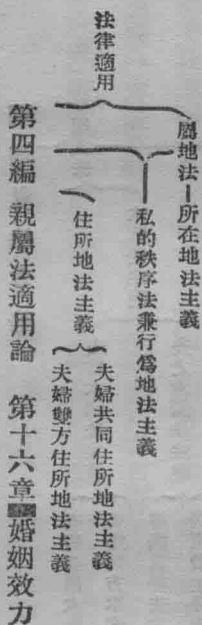 法律適用
屬地法—所在地法主義
私的秩序法兼行爲地法主義
住所地法主義
夫婦共同住所地法主義
夫婦雙方住所地法主義
第四編 親屬法適用論 第十六章 婚姻效力